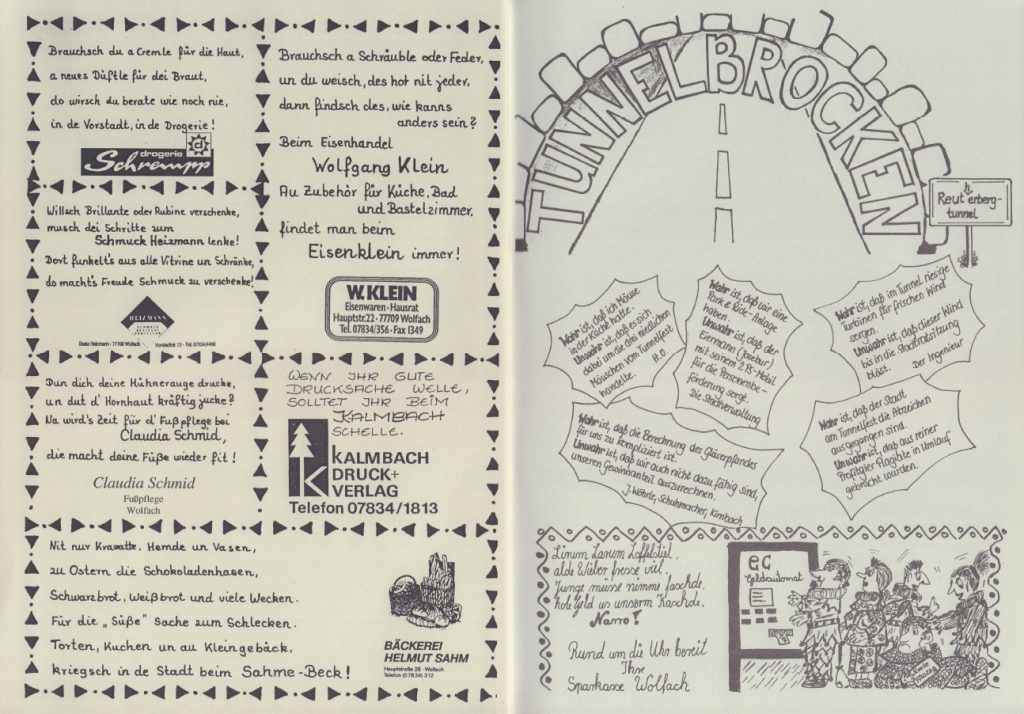 Brauchsch du a Cremle für die Haut,
a neues Düftle für dei Braut,
do wirsch du berate wie noch nie,
in de Vorstadt, in de Drogerie!
drogerie
d
Schrempp
Willsch Brillante oder Rubine verschenke,
musch dei Schritte zum
Schmuck Heizmann lenke!
Dort funkelt's aus alle Vitrine un Schränke,
do macht's Freude Schmuck zu verschenke!
HEIZMANN
Beate Heizmann - 77709 Wolfach
Vorstadtstr. 13 - Tel. 07834/4468
Dun dich deine Hühnerauge drucke,
un dut d' Hornhaut kräftig jucke?
Na wird's Zeit für d' Fußpflege bei
Claudia Schmid,
die macht deine Füße wieder fit!
Claudia Schmid
Fußpflege
Wolfach
Brauchsch a Schräuble oder Feder,
un du weisch, des hot nit jeder,
dann findsch des, wie kanns
anders sein?
Beim Eisenhandel
Wolfgang Klein
Au Zubehör für Küche, Bad
und Bastelzimmer,
findet man beim
Eisenklein immer!
W. KLEIN
Eisenwaren · Hausrat
Hauptstr.22 · 77709 Wolfach
Tel. 07834/356 · Fax 1349
WENN IHR GUTE
DRUCKSACHE WELLE,
SOLLTET IHR BEIM
KALMBACH
SCHELLE.
K
KALMBACH
DRUCK+
VERLAG
Telefon 07834/1813
Nit nur Krawatte, Hemde un Vasen,
zu Ostern die Schokoladenhasen,
Schwarzbrot, Weißbrot und viele Wecken.
Für die „Süße" Sache zum Schlecken.
Torten, Kuchen un au Kleingebäck,
kriegsch in de Stadt beim Sahme-Beck!
BÄCKEREI
HELMUT SAHM
Hauptstraße 28 · Wolfach
Telefon (0 78 34) 312
TUNNELBROCKEN
h
Reut erberg-
tunnel
Wahr ist, daß ich Mäuse
in der Küche hatte.
Unwahr ist, daß es sich
dabei um die drei niedlichen
Mäuschen vom Tunnelfest
handelte.
H.O.
Wahr ist, daß wir eine
Park & Ride-Anlage
haben.
Unwahr ist, daß der
Eiermann (Josebur)
mit seinem 2 PS-Mobil
für die Personenbe-
förderung sorgt.
Die Stadtverwaltung
Wahr ist, daß im Tunnel riesige
Turbinen für frischen Wind
sorgen.
Unwahr ist, daß dieser Wind
bis in die Stadtratsitzung
bläst.
Der Ingenieur
Wahr ist, daß die Berechnung des Gläserpfandes
für uns zu kompliziert ist.
Unwahr ist, daß wir auch nicht dazu fähig sind,
unseren Gewinnanteil auszurechnen.
J. Wöhrle, Schuhmacher, Kimbach
Wahr ist, daß der Stadt
am Tunnelfest die Abzeichen
ausgegangen sind.
Unwahr ist, daß aus reiner
Profitgier Plagiate in Umlauf
gebracht wurden.
Linum Larum Löffelstiel,
alde Wiber fresse viel.
Junge müsse nimme faschde,
hole Geld us unserm Kaschde.
Narro!
Rund um die Uhr bereit
Ihre
Sparkasse Wolfach
EC
Geldautomat